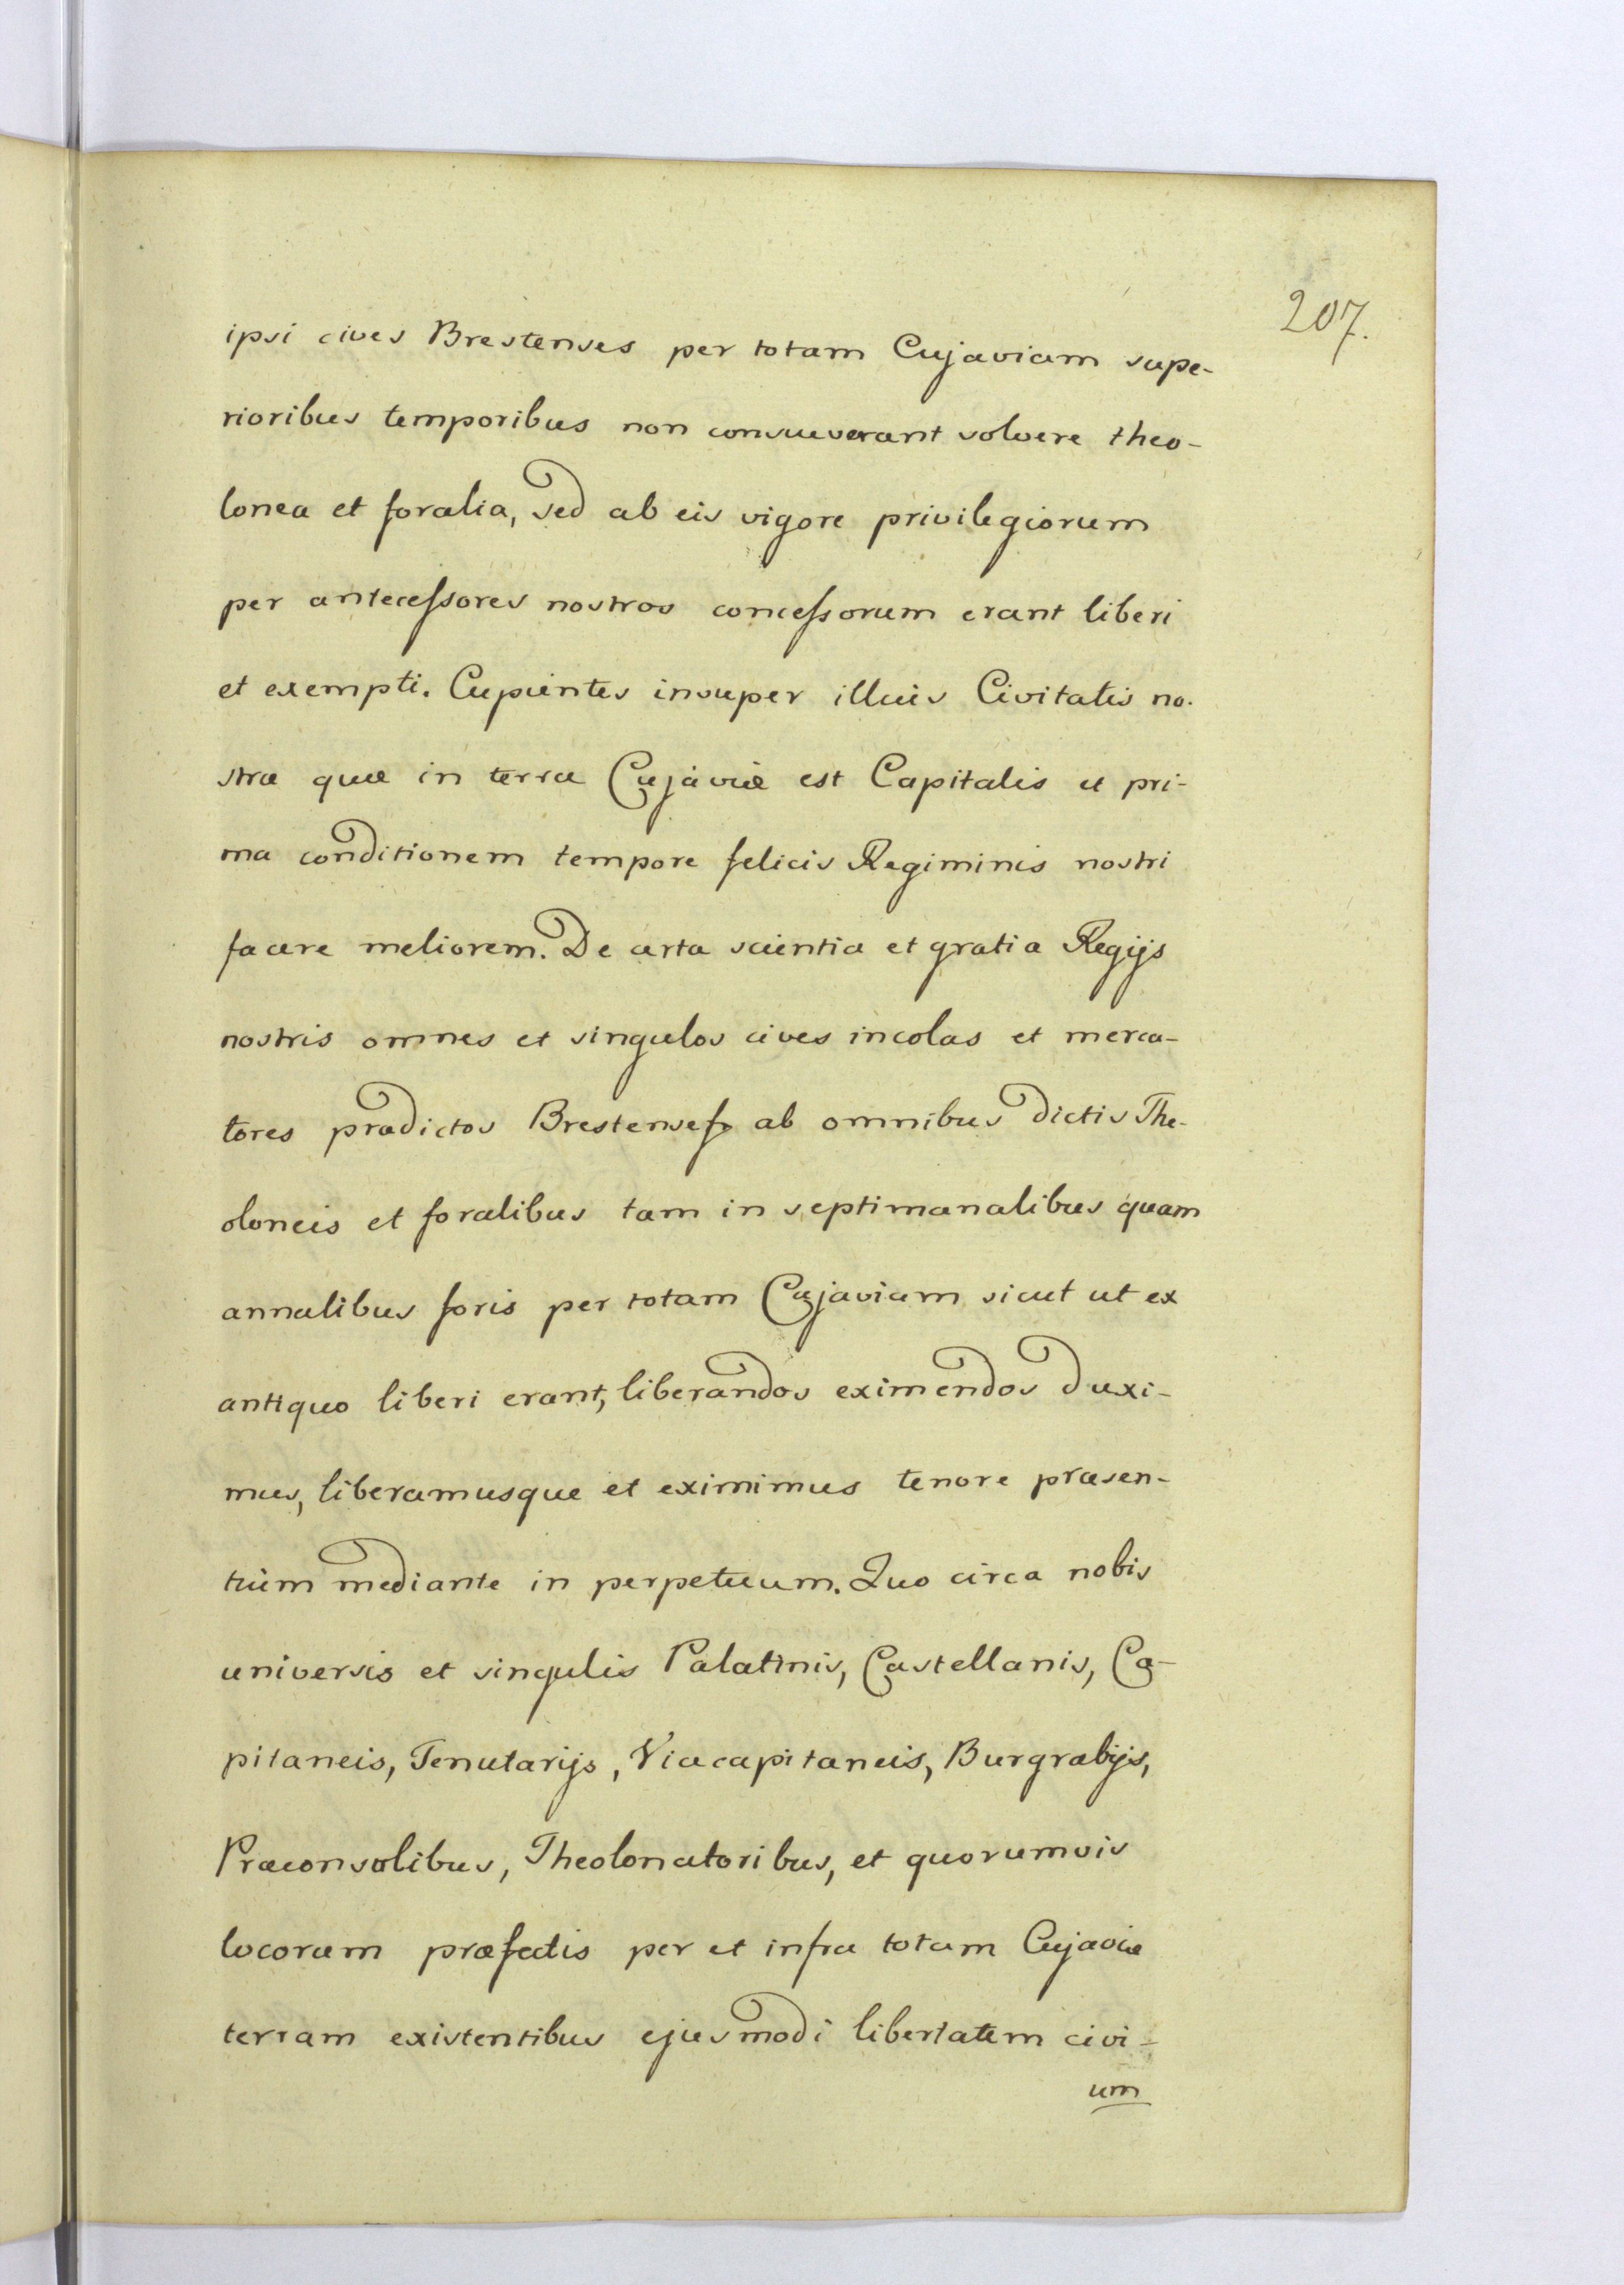 207.
ipsi cives Brestenses per totam Cujaviam supe-
rioribus temporibus non consueverant solvere theo-
lonea et foralia, sed ab eis vigore privilegiorum
per antecessores nostros concessorum erant liberi
et exempti. Cupientes insuper illius Civitatis no-
stræ quæ in terra Cujaviæ est Capitalis et pri-
ma conditionem tempore felicis Regiminis nostri
facere meliorem. De certa scientia et gratia Regijs
nostris omnes et singulos cives incolas et merca-
tores prædictos Brestenses ab omnibus dictis The-
oloneis et foralibus tam in septimanalibus quam
annalibus foris per totam Cujaviam sicut ut ex
antiquo liberi erant, liberandos eximendos duxi-
mus, liberamusque et eximimus tenore præsen-
tium mediante in perpetuum. Quo circa nobis
universis et singulis Palatinis, Castellanis, Ca-
pitaneis, Tenutarijs, Vicecapitaneis, Burgrabijs,
Præconsolibus, Theolonatoribus, et quorumvis
locorum præfectis per et infra totam Cujaviæ
terram existentibus ejusmodi libertatem civi-
um